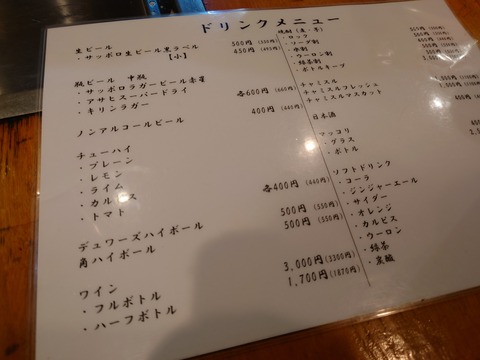 ドリンクメニュー
生ビール
・サッポロ生ビール黒ラベル 500円(550円)
【小】 450円(495円)
瓶ビール 中瓶
・サッポロラガービール赤星
・アサヒスーパードライ 各600円(660円)
・キリンラガー
ノンアルコールビール 400円(440円)
チューハイ
・プレーン
・レモン
・ライム
・カルピス 各400円(440円)
・トマト
デュワーズハイボール 500円(550円)
角ハイボール 500円(550円)
ワイン
・フルボトル 3,000円(3300円)
・ハーフボトル 1,700円(1870円)
焼酎(麦・芋)
・ロック
・ソーダ割
・水割
・ウーロン割
・緑茶割
・ボトルキープ
チャミスル
チャミスルフレッシュ
チャミスルマスカット
日本酒
マッコリ
・グラス
・ボトル
ソフトドリンク
・コーラ
・ジンジャーエール
・サイダー
・オレンジ
・カルピス
・ウーロン
・緑茶